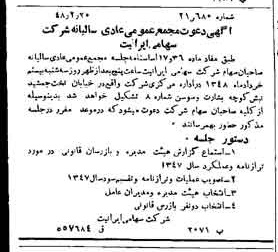 شماره ۲۱/۶۸۰ ۴۸/۲/۲۰
آگهی دعوت مجمع عمومی عادی سالیانه شرکت
سهامی ایرانیت
طبق مفاد ماده ۳۶ و ۱۷ اساسنامه جلسه مجمع عمومی عادی سالیانه
صاحبان سهام شرکت سهامی ایرانیت ساعت پنج بعد از ظهر روز سه شنبه بیستم
خرداد ماه ۱۳۴۸ در اداره مرکزی شرکت واقع در خیابان تخت جمشید
نبش کوچه بشارت و سوسن شماره ۸ تشکیل خواهد شد بدینوسیله
از کلیه صاحبان سهام شرکت دعوت میشود که در موعد مقرر در جلسه
مذکور حضور بهمرسانند.
دستور جلسه:
۱- استماع گزارش هیئت مدیره و بازرسان قانونی در مورد
ترازنامه و عملکرد سال ۱۳۴۷
۲- تصویب عملیات و ترازنامه و تقسیم سود سال ۱۳۴۷
۳- انتخاب هیئت مدیره و مدیران عامل
۴- انتخاب دو نفر بازرس قانونی
شرکت سهامی ایرانیت
پ ۲۰۷۱ ق ۵۵۷۶۸۴